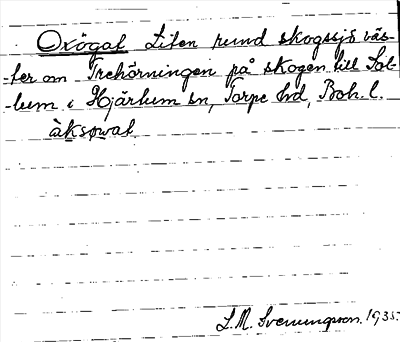 Oxögat Liten rund skogssjö väs-
-ter om Trehörningen på skogen till Sol-
-lum i Hjärtum sn, Torpe hd, Boh. l.
àksəwat
L.M. Svenungsson. 1935.